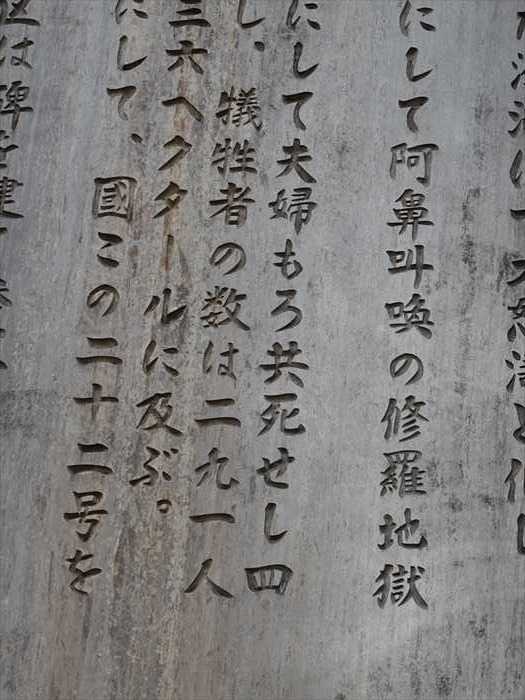 怒濤と化し
にして阿鼻叫喚の修羅地獄
にして夫婦もろ共死せし四
し、犠牲者の数は二九一人
三六ヘクタールに及ぶ。
にして、國この二十二号を
は碑を建